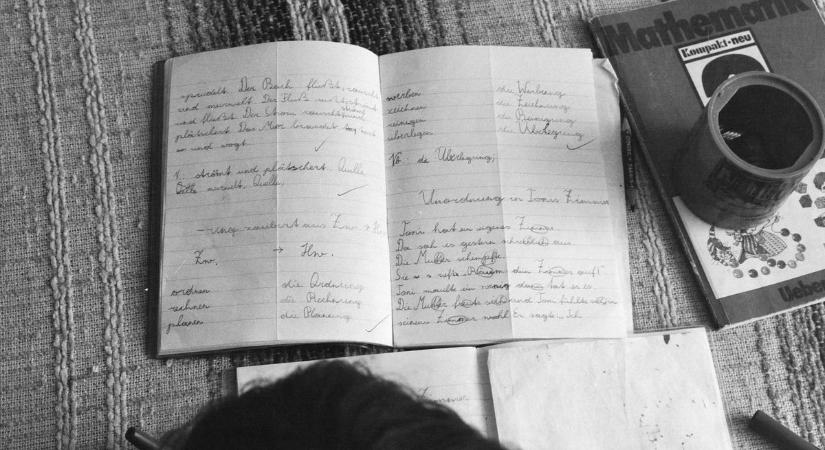 sprudelt. Der Bach fließt, rauscht
und murmelt. Der Fluß
und fließt. Der Strom rauscht
plätschert. Das Meer braundet
so und wogt.
V. strömt und plätschert. Quelle
murmelt, Quelle,
-ung zaubert aus Zw. → Hw.
Zw. → Hw.
ordnen die Ordnung
rechnen die Rechnung
planen die Planung
werben die Werbung
zeichnen die Zeichnung
reinigen die Reinigung
überlegen die Überlegung
Vb. die Überlegung,
Unordnung in Tonis Zimmer
Toni hat ein eigenes Zimmer.
Da sah es gestern schrecklich aus.
Die Mutter schimpfte.
Sie rufte dein Zimmer auf!"
Toni maulte ein wenig dann hat er es.
Die Mutter freute sich und Toni fühlte sich in
seinem Zimmer wohl Er sagte: Ich
Zimmer
Mathematik
Kompakt-neu
Ueber